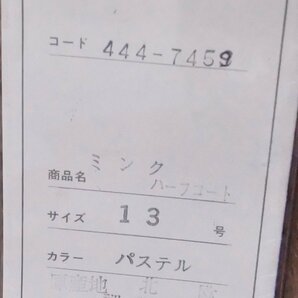 コード 444-7459
ミンク
商品名 ハーフコート
サイズ 13 号
カラー パステル
原産地 北欧